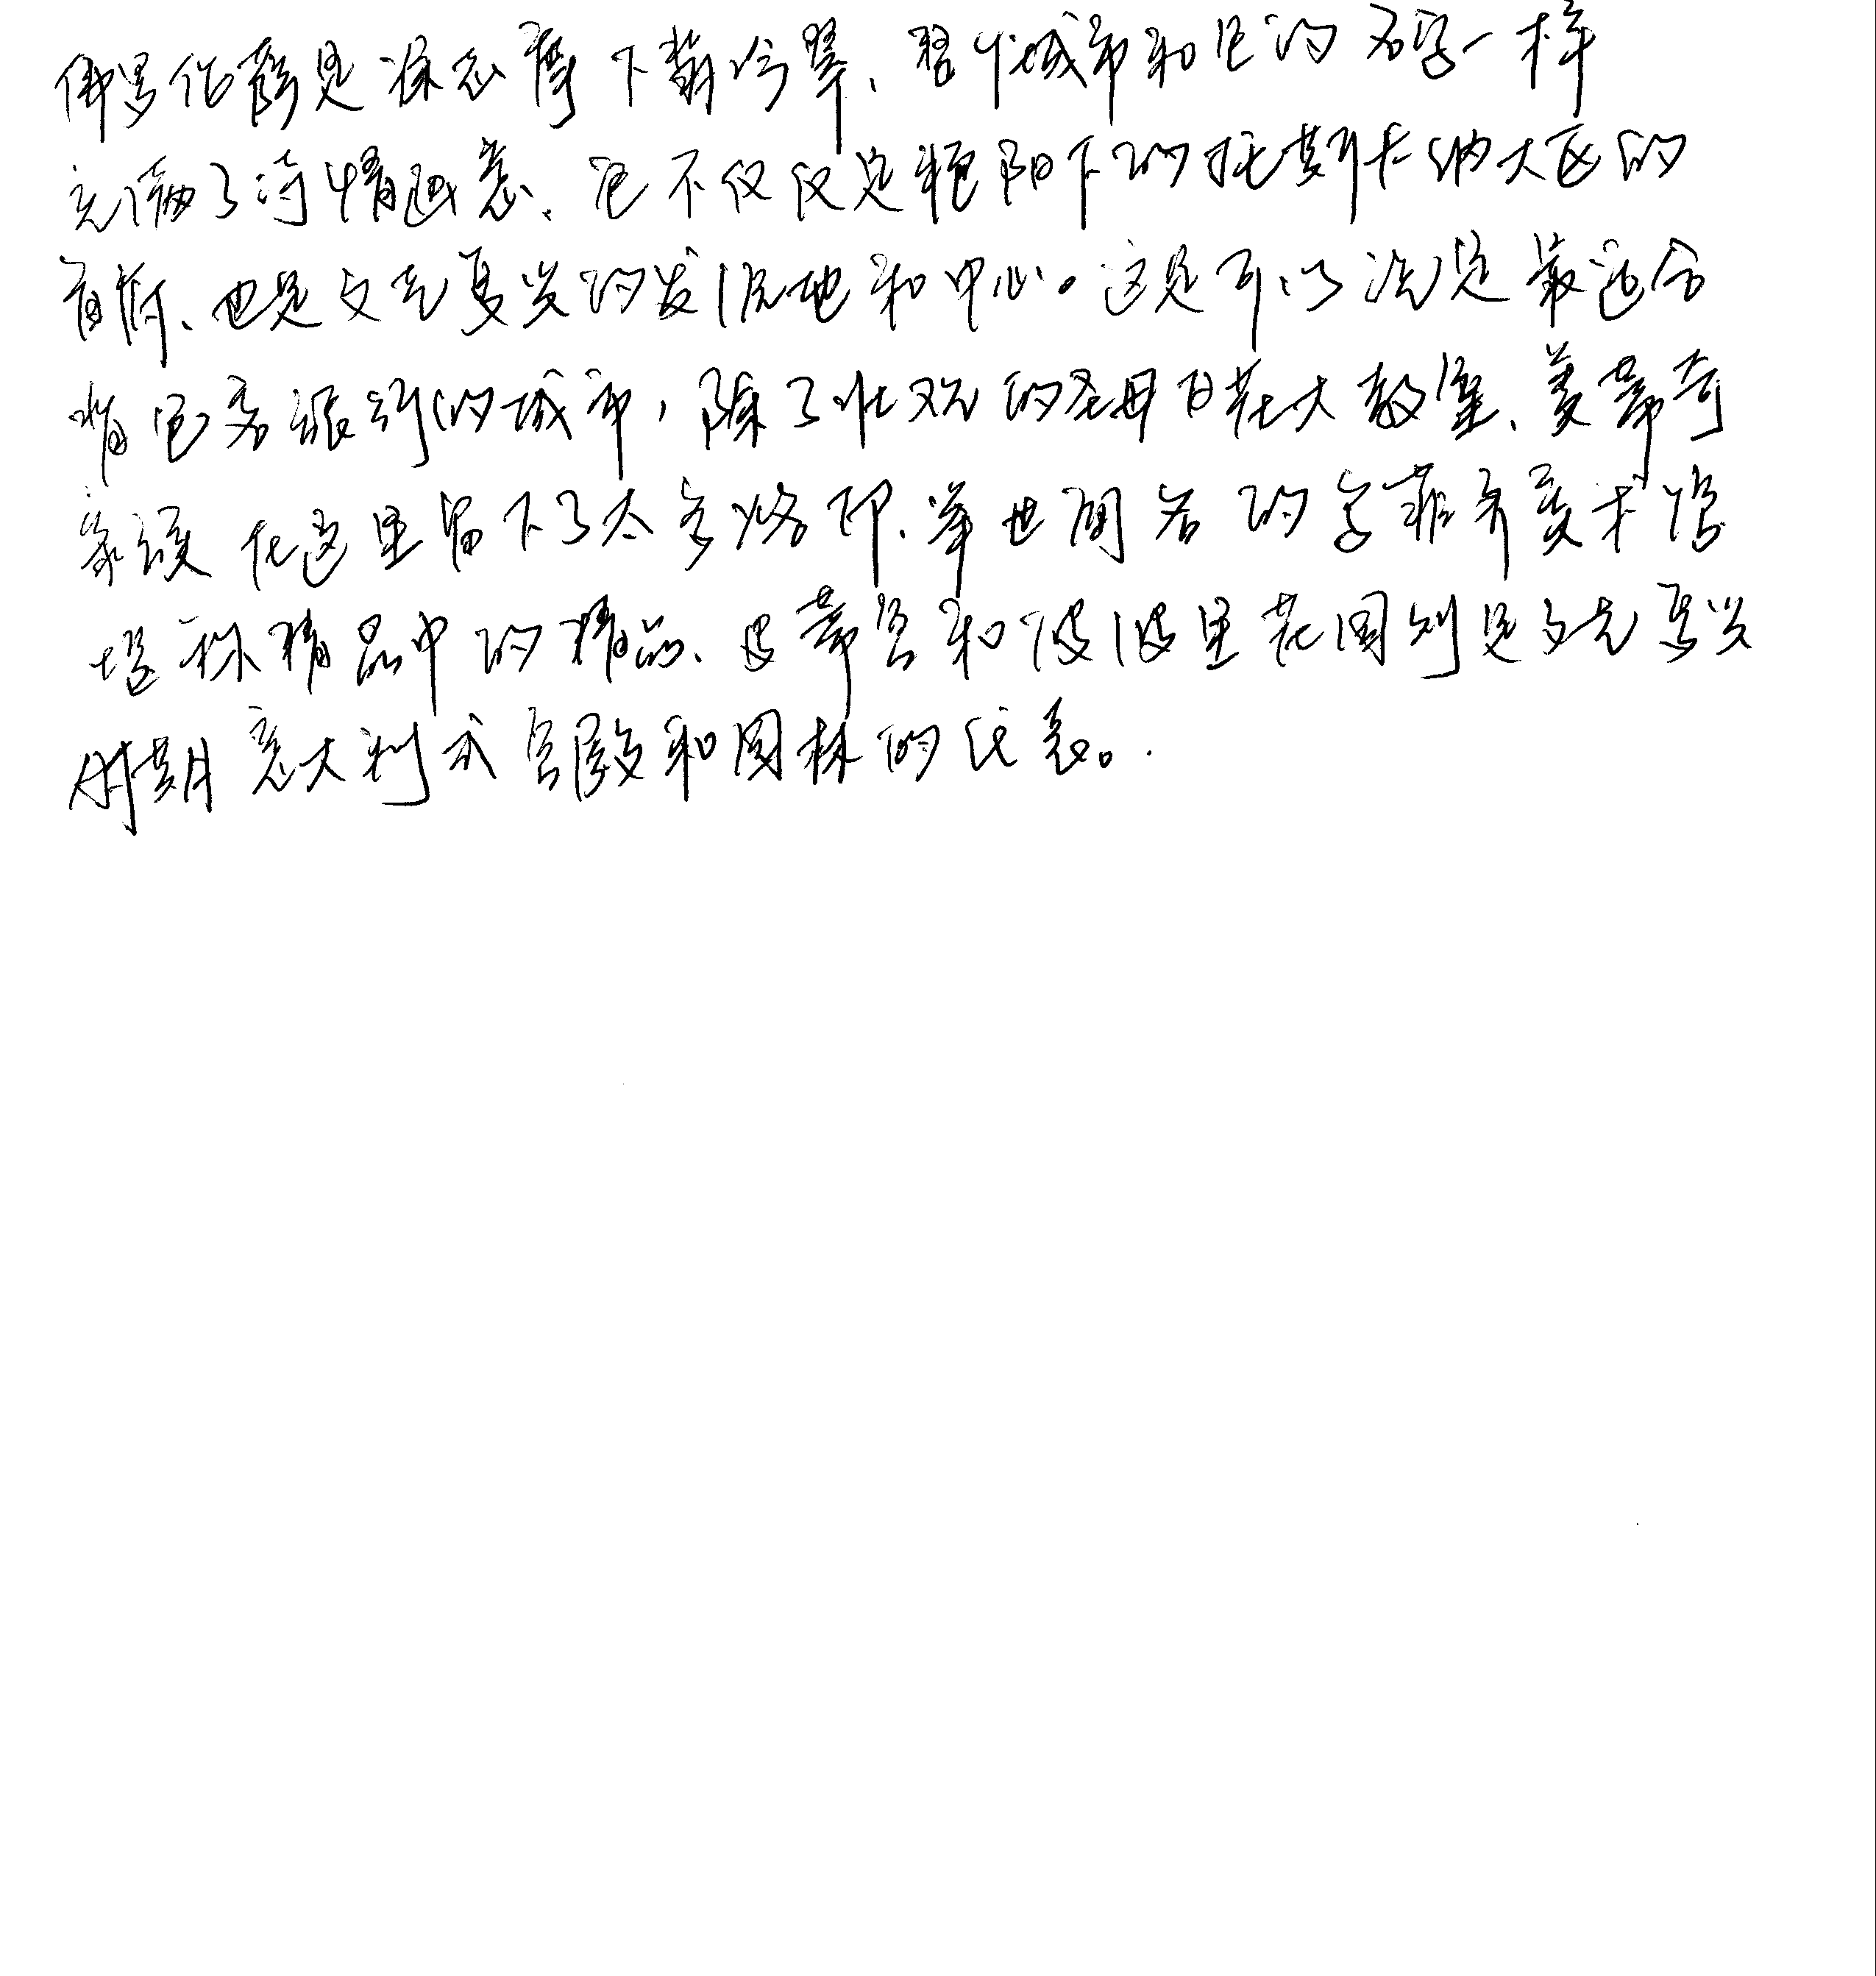 佛罗伦萨是徐志摩下翡冷翠、整个城市和它的名字一样
充满了诗情画意、它不仅仅是艳阳下的托斯卡纳大区的
首府、也是文艺复兴的发源地和中心。这是可以说是最适合
背包客旅行的城市，除了壮观的圣母百花大教堂、美蒂奇
家族在这里留下了太多烙印、举世闻名的乌菲齐美术馆
堪称精品中的精品、皮蒂宫和波波里花园则是文艺复兴
时期意大利式宫殿和园林的代表。